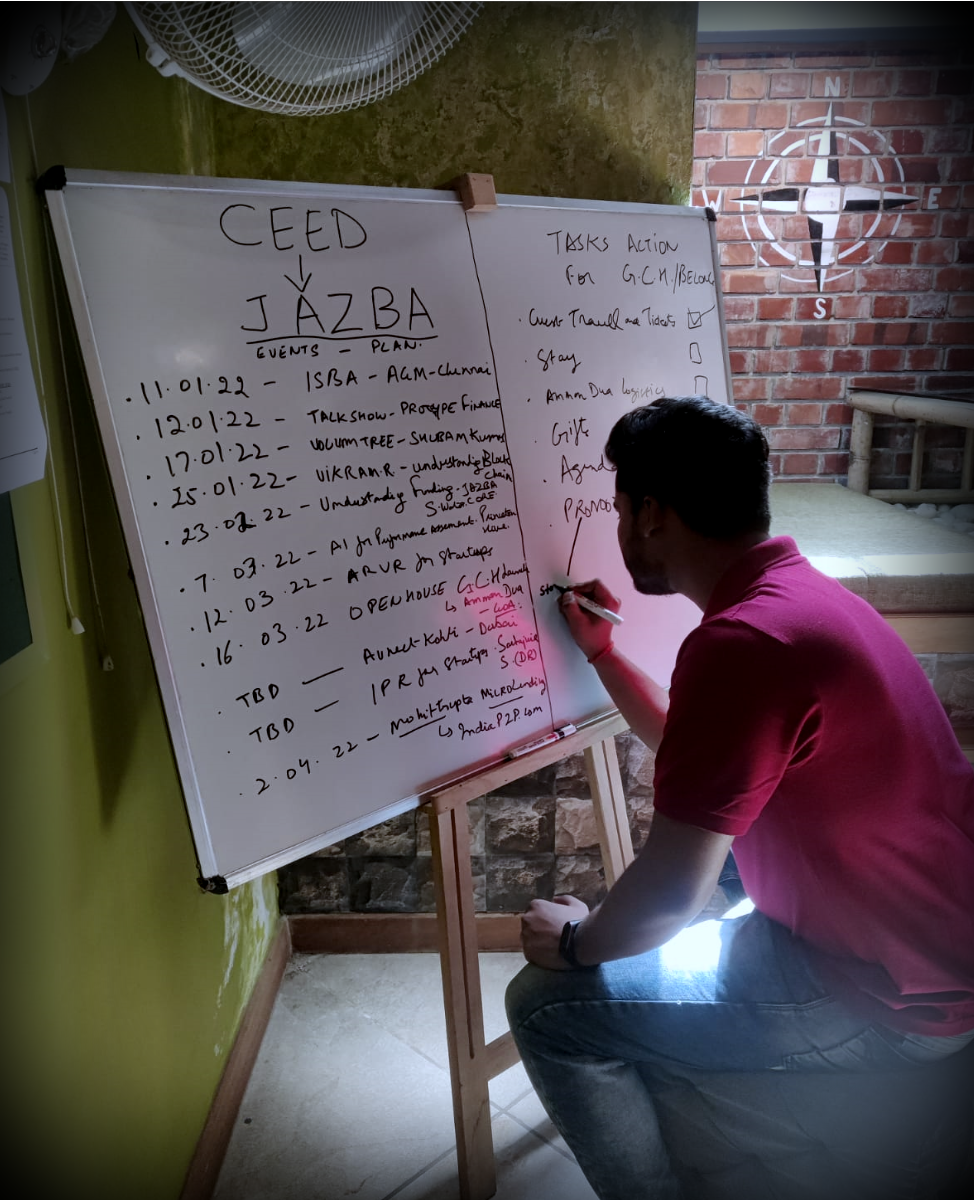 CEED
JAZBA
EVENTS - PLAN.
. 11.01.22 - ISBA - AGM-Chennai
. 12.01.22 - TALKSHOW - PROTYPE FINANCE
. 17.01.22 - VOLUMTREE - SHUBAM Kumar
. 25.01.22 - VIKRAM.R - understanding Block
Chain
. 23.02.22 - Understanding Funding - JAZBA
CORE
. 7. 03.22 - AI for
. 12.03.22 - AR VR for Startups
. 16.03.22 OPENHOUSE G.C.H
Amman Dua
- GOA.
. TBD — Avneet Kohli - Dubai
. TBD — IPR for Startups.
S.(DR)
. 2.04.22 - Mohit Gupta MICROLending
India P2P.com
TASKS ACTION
FOR G.C.H./BELONG
. Guest Travel and Tickets
. Stay
. Amman Dua logistics
. Gifts
. Agenda
. PROMO
N
W E
S